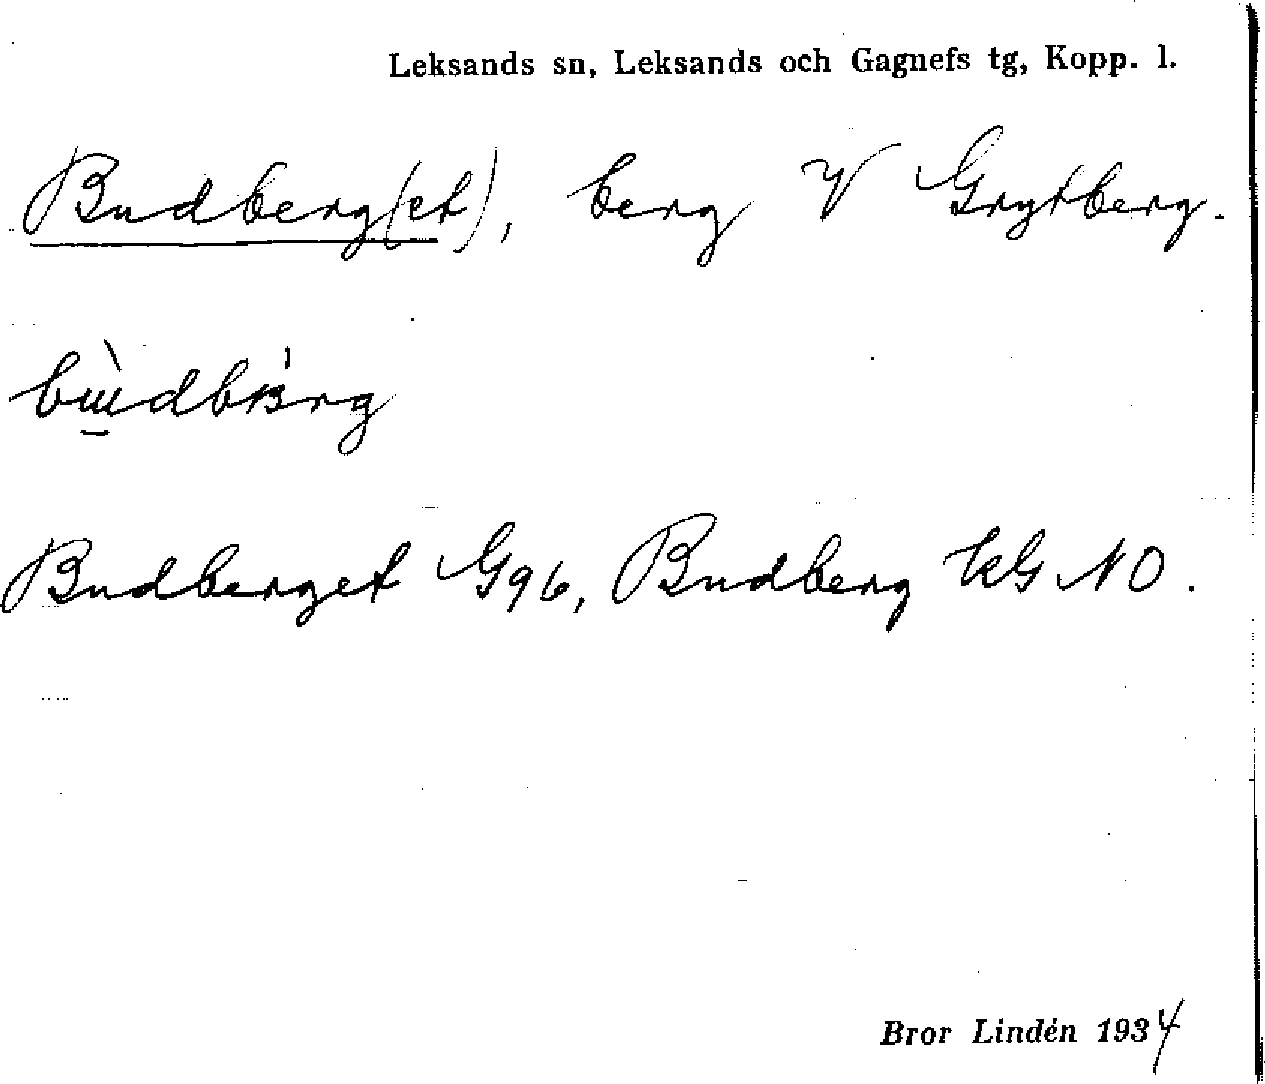 Leksands sn, Leksands och Gagnefs tg, Kopp. l.
Budberg(et), berg V Grytberg.
Budberget G96, Budberg kG NO.
Bror Lindén 1934